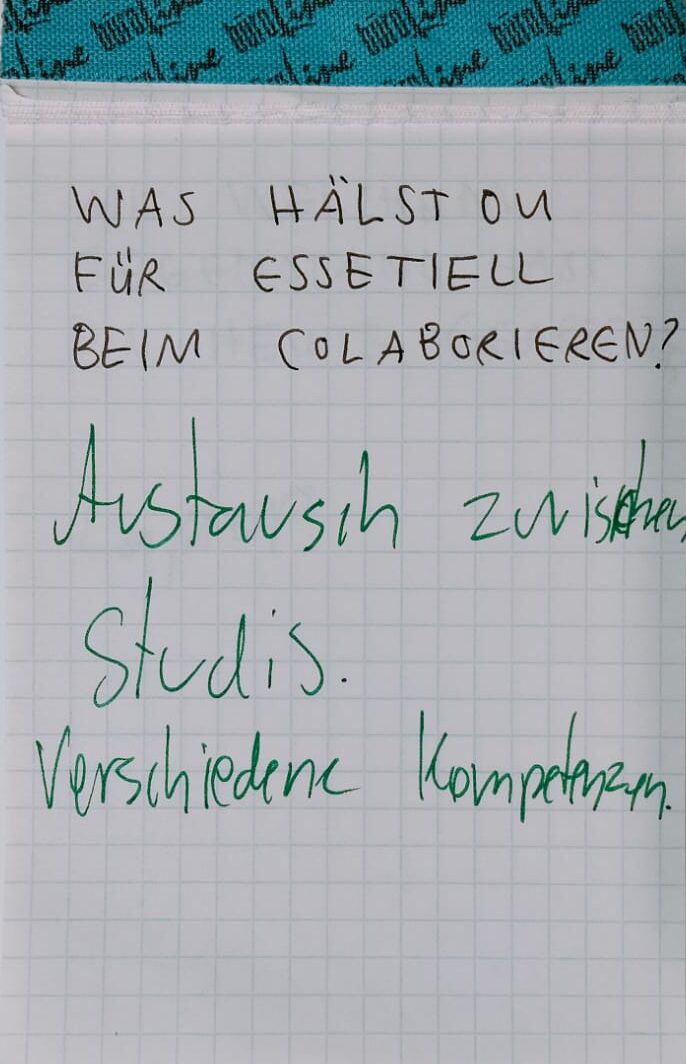 büroLine büroLine büroLine büroLine büroLine
WAS HÄLST DU
FÜR ESSETIELL
BEIM COLABORIEREN?
Austausch zwischen
Studis.
Verschiedene Kompetenzen.